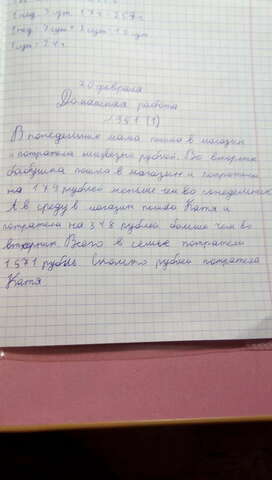 20 февраля
Домашняя работа
1351 (1)
В понедельник мама пошла в магазин
и потратила рублей. Во вторник
бабушка пошла в магазин и потратила
на 179 рублей меньше чем во понедельник
А в среду в магазин пошла Катя и
потратила на 348 рублей больше чем во
вторник. Всего в семье потратели
1571 рубль. Сколько рублей потратела
Катя